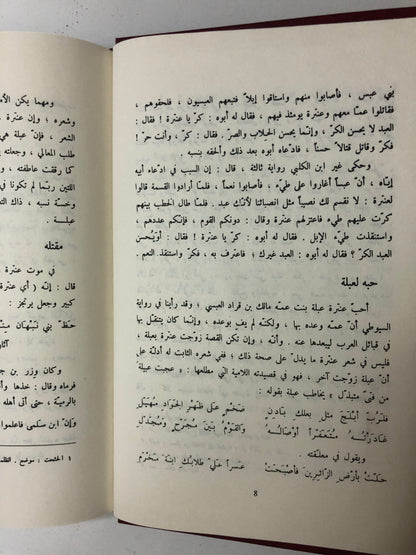 بني عبس ، فأصابوا منهم واستاقوا إبلاً فتبعهم العبسيون ، فلحقوهم ،
فقاتلوا عمّا معهم وعنترة يومئذ فيهم ، فقال له أبوه : كرّ يا عنترة ! فقال :
العبد لا يحسن الكرّ ، وإنما يحسن الحِلاب والصرّ . فقال : كرّ ، وأنت حرّ !
فكرّ وقاتل قتالاً حسناً ، فادّعاه أبوه بعد ذلك وألحقه بنسبه .
وحكى غير ابن الكلبي رواية ثالثة ، قال : إن السبب في ادعاء أبيه
إيّاه ، أنّ عبساً أغاروا على طيّء ، فأصابوا نعماً ، فلمّا أرادوا القسمة قالوا
لعنترة : لا نقسم لك نصيباً مثل انصبائنا لأنّك عبد . فلمّا طال الخطب بينهم
كرّت عليهم طيّء فاعتزلهم عنترة وقال : دونكم القوم ، فإنكم عددهم ،
واستنقذت طيّء الإبل . فقال له أبوه : كرّ يا عنترة ! فقال : أوَيُحسن
العبد الكرّ ؟ فقال له أبوه : العبد غيرك ؛ فاعترف به ، فكرّ واستنقذ النعم .
حبه لعبلة
أحبّ عنترة عبلة بنت عمّه مالك بن قراد العبسي ؛ وقد رأينا في رواية
السيوطي أنّ عمّه وعده بها ، ولكنّه لم يفِ بوعده ، وإنّما كان يتنقّل بها
في قبائل العرب ليبعدها عنه . وإن تكن القصة زوجت عنترة بعبلة ،
فليس في شعر عنترة ما يدلّ على صحة ذلك ؛ ففي شعره الثابت له أدلّة على
أنّ عبلة زوّجت آخر ، فهو في قصيدته اللامية التي مطلعها : « عجبت عبيلةُ
من فتىً متبذّل » يخاطب عبلة بقوله :
فلَرُبّ أبْلَجَ مثل بعلك بادِنٍ ضَخْمٍ على ظهر الجَوَاد مُهَبَّلِ
غادَرْتُهُ مُتَعَفِّراً أوْصَالُهُ والقَوْمُ بَينَ مُجَرَّحٍ ومُجَدَّلِ
ويقول في معلقته :
حَلّتْ بأرْضِ الزّائرِينَ فأصْبَحَتْ عَسِراً عَليّ طِلابُكِ ابنَةَ مَخْرَمِ
8
ومهما يكن الأمر
وشعره ؛ وإن عنترة
الشعر ، فإنّ عبلة هي
طلب المعالي ، وجعلته
كما رققت عاطفته ،
اللتين ربّما لم تكونا في
وخسّة نسبه ، ذاك
عبلة .
مقتله
في موت عنترة
قال : إنّه
كبير وجعل يرتجز :
حَظّ بني نَبْهانَ
وكان وزر بن
فرماه وقال : خذها
بالرميّة ، حتى أتى أهله
وإنّ ابن سلمى فاعلموا